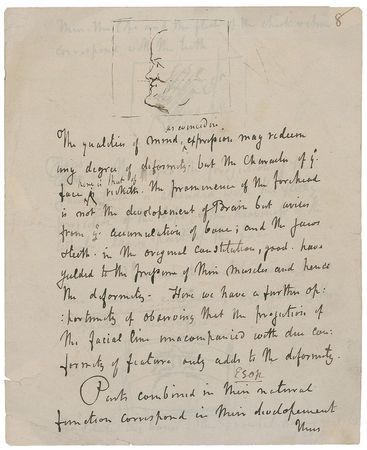 8
as evinced in
The qualities of mind, expression may redeem
any degree of deformity. but the Character of yᵉ
face here is that of rickets. The prominence of the forehead
is not the development of Brain but arises
from yᵉ accumulation of bone; and the jaws
& teeth. in the original constitution, good. have
yielded to the pressure of their muscles and hence
the deformity. Here we have a further op:
:portunity of observing that the projection of
the facial line unaccompanied with due con:
formity of feature only adds to the deformity.
Esop
Parts combined in their natural
function correspond in their developement
Thus